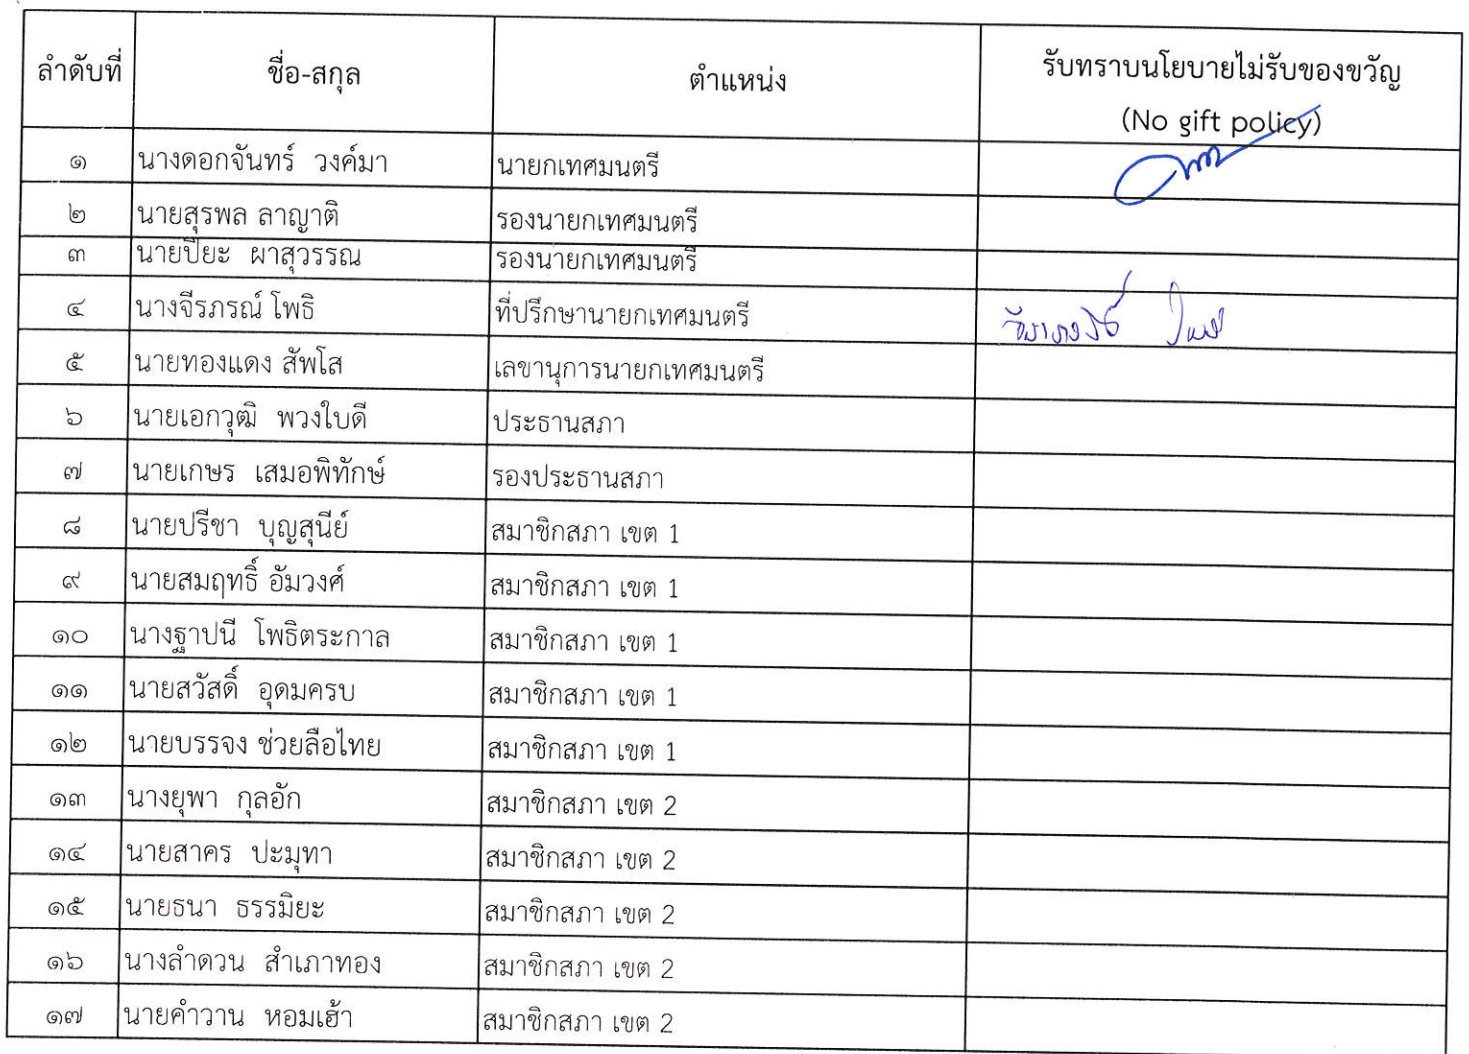 ลำดับที่ ชื่อ-สกุล ตำแหน่ง รับทราบนโยบายไม่รับของขวัญ
(No gift policy)
๑ นางดอกจันทร์ วงค์มา นายกเทศมนตรี
๒ นายสุรพล ลาญาติ รองนายกเทศมนตรี
๓ นายปิยะ ผาสุวรรณ รองนายกเทศมนตรี
๔ นางจีรภรณ์ โพธิ ที่ปรึกษานายกเทศมนตรี
๕ นายทองแดง สัพโส เลขานุการนายกเทศมนตรี
๖ นายเอกวุฒิ พวงใบดี ประธานสภา
๗ นายเกษร เสมอพิทักษ์ รองประธานสภา
๘ นายปรีชา บุญสุนีย์ สมาชิกสภา เขต 1
๙ นายสมฤทธิ์ อัมวงศ์ สมาชิกสภา เขต 1
๑๐ นางฐาปนี โพธิตระกาล สมาชิกสภา เขต 1
๑๑ นายสวัสดิ์ อุดมครบ สมาชิกสภา เขต 1
๑๒ นายบรรจง ช่วยลือไทย สมาชิกสภา เขต 1
๑๓ นางยุพา กุลอัก สมาชิกสภา เขต 2
๑๔ นายสาคร ปะมุทา สมาชิกสภา เขต 2
๑๕ นายธนา ธรรมิยะ สมาชิกสภา เขต 2
๑๖ นางลำดวน สำเภาทอง สมาชิกสภา เขต 2
๑๗ นายคำวาน หอมเฮ้า สมาชิกสภา เขต 2